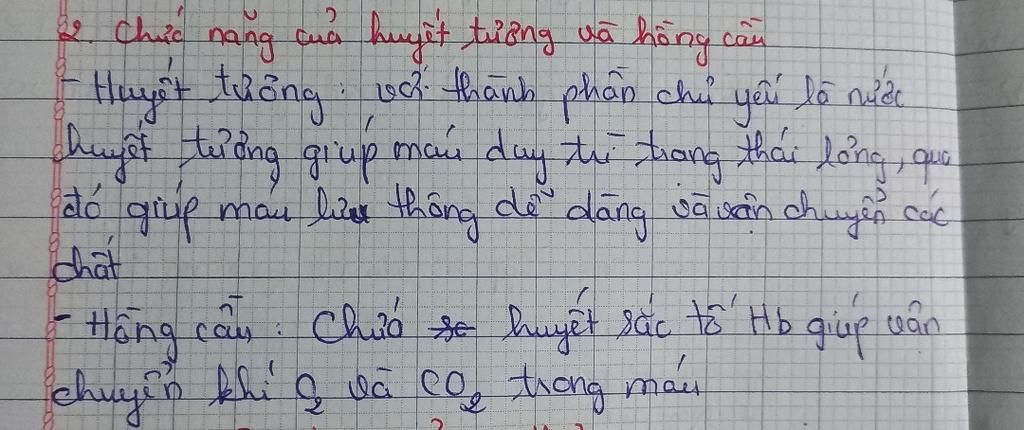 2. Chức năng của huyết tương và hồng cầu
- Huyết tương: với thành phần chủ yếu là nước
huyết tương giúp máu duy trì trạng thái lỏng, qua
đó giúp máu lưu thông dễ dàng và vận chuyển các
chất
- Hồng cầu: Chứa huyết sắc tố Hb giúp vận
chuyển khí O₂ và CO₂ trong máu